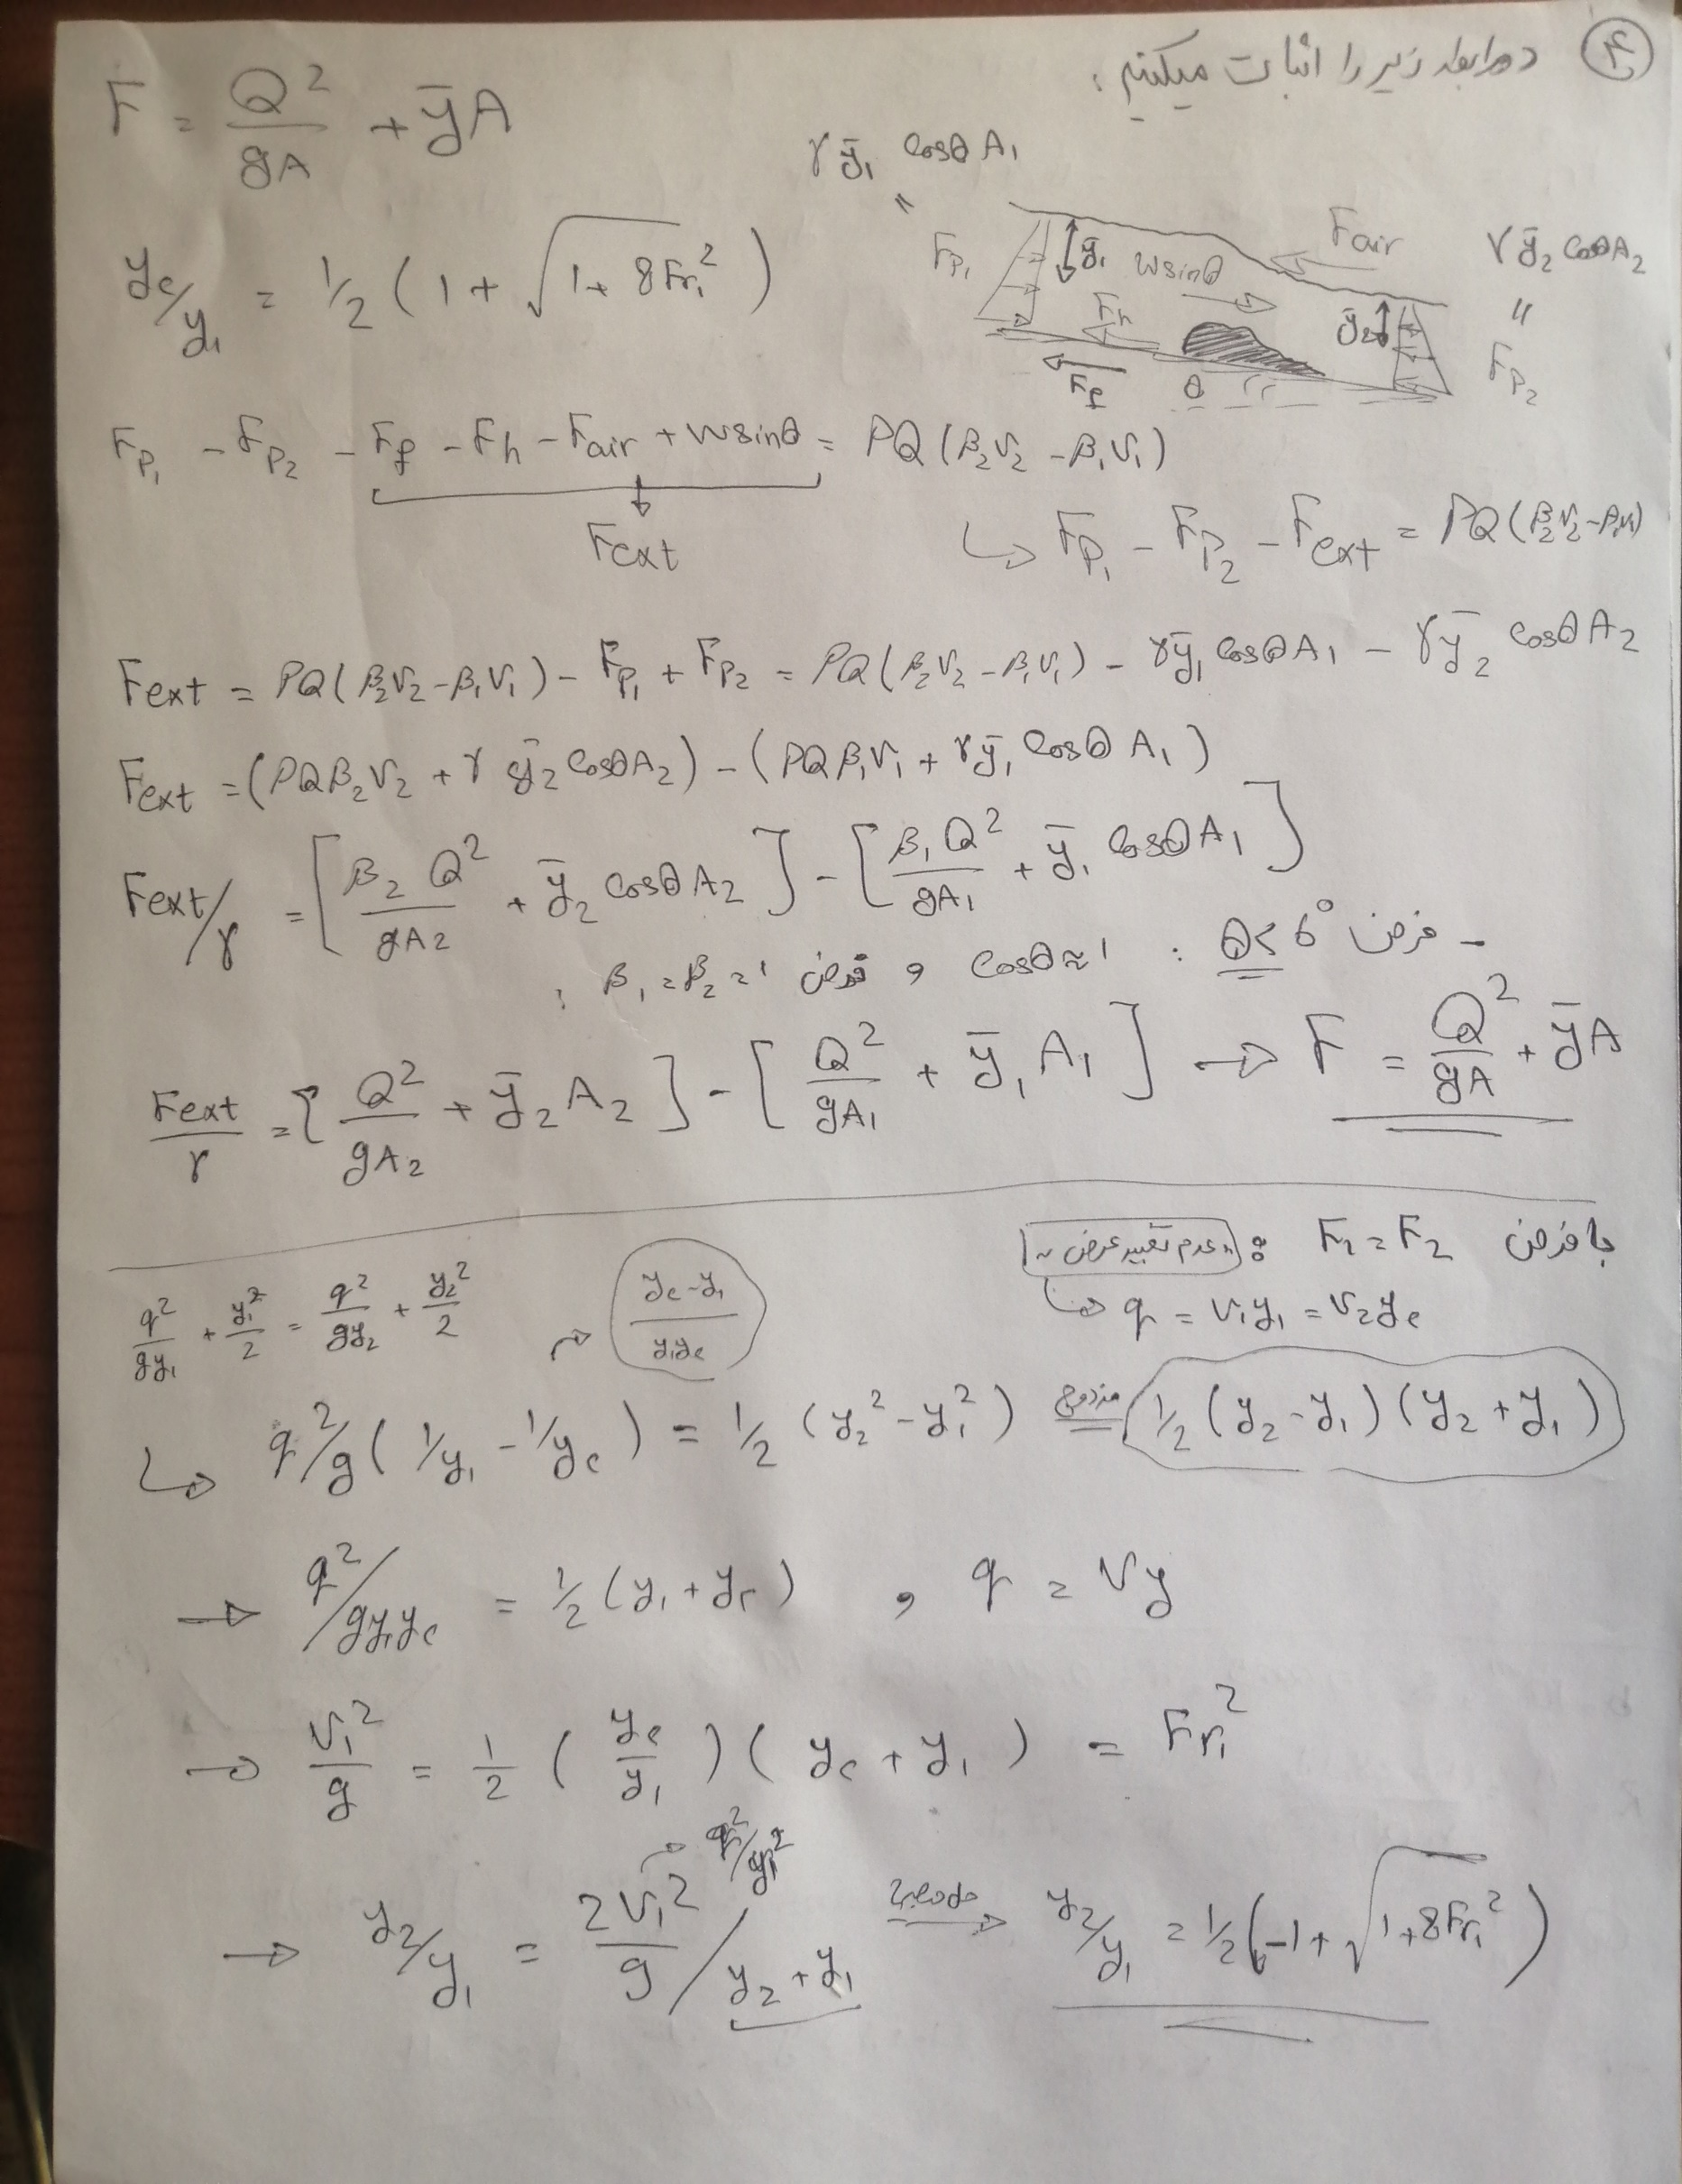 ④ دو رابطه زیر را اثبات میکنیم:
F = Q²/gA + ȳA
γȳ₁ cosθ A₁
"
Fp₁ ȳ₁ W sinθ Fair γȳ₂ cosθ A₂
"
Fh ȳ₂ Fp₂
Ff θ
y₂/y₁ = ½ (1 + √(1 + 8Fr₁²))
Fp₁ - Fp₂ - Ff - Fh - Fair + W sinθ = ρQ(β₂V₂ - β₁V₁)
Fext
↳ Fp₁ - Fp₂ - Fext = ρQ(β₂V₂ - β₁V₁)
Fext = ρQ(β₂V₂ - β₁V₁) - Fp₁ + Fp₂ = ρQ(β₂V₂ - β₁V₁) - γȳ₁ cosθ A₁ - γȳ₂ cosθ A₂
Fext = (ρQβ₂V₂ + γ ȳ₂ cosθA₂) - (ρQβ₁V₁ + γȳ₁ cosθ A₁)
Fext/γ = [β₂Q²/gA₂ + ȳ₂ cosθ A₂] - [β₁Q²/gA₁ + ȳ₁ cosθ A₁]
- فرض θ < 6° : cosθ ≈ 1 و فرض β₁ = β₂ = 1 :
Fext/γ = [Q²/gA₂ + ȳ₂A₂] - [Q²/gA₁ + ȳ₁A₁] → F = Q²/gA + ȳA
با فرض F₁ = F₂ : "عدم تغییر عرض"
↳ q = V₁y₁ = V₂y₂
q²/gy₁ + y₁²/2 = q²/gy₂ + y₂²/2
→ (y₂ - y₁)/y₁y₂
↳ q²/g (1/y₁ - 1/y₂) = ½ (y₂² - y₁²) مزدوج = ½ (y₂ - y₁)(y₂ + y₁)
→ q²/gy₁y₂ = ½ (y₁ + y₂) , q = Vy
→ V₁²/g = ½ (y₂/y₁)(y₂ + y₁) = Fr₁²
→ q²/y₁²
→ y₂/y₁ = 2V₁²/g / y₂ + y₁ → y₂/y₁ = ½ (-1 + √(1 + 8Fr₁²))